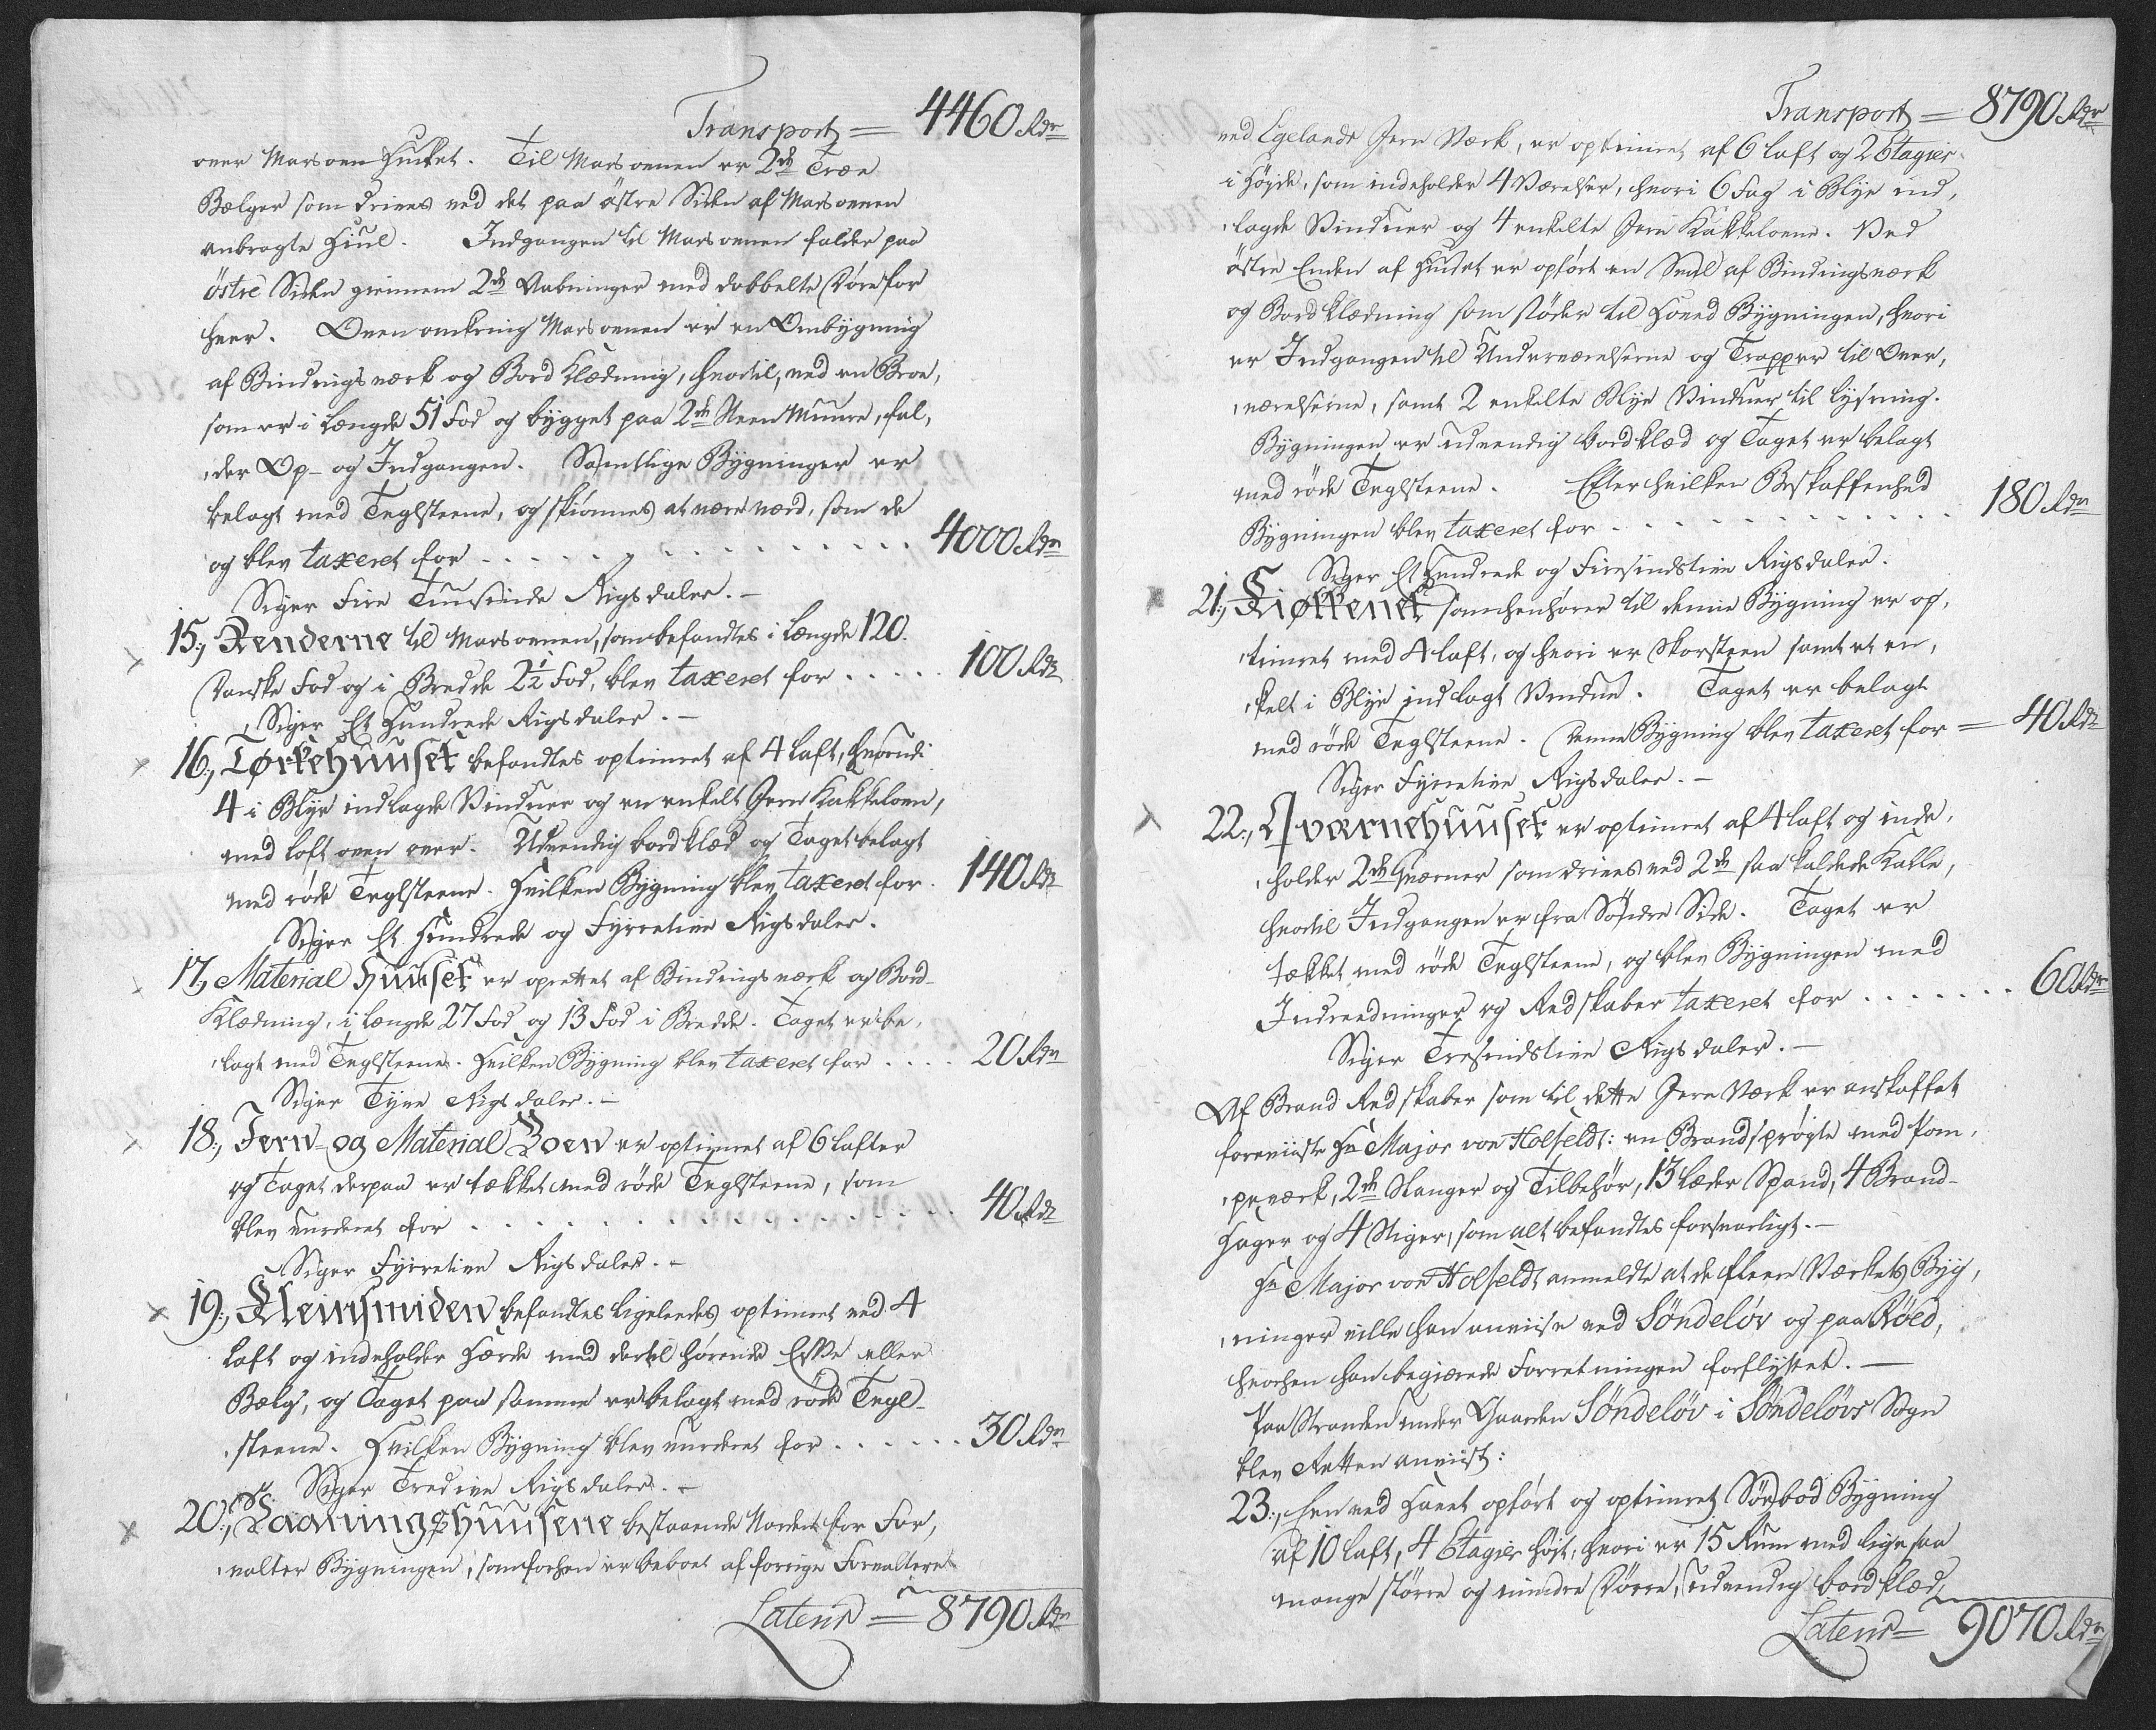 Transport = 4460 Rdr
over Masovn Hullet. Til Masovnen er 2de Træe
Bælger som drives ved det paa östre Siden af Masovnen
anbragte Hiul. Indgangen til Masovnen falder paa
östre Siden giennem 2de Aabninger med dobbelte Döre for
hver. Oven omkring Masovnen er en Ombÿgning
af Bindingsværk og Bord Klædning, hvortil, ved en Broe,
som er i Længde 51 Fod og bygget paa 2de Steen Muure, fal,
,der Op- og Indgangen. Samtlige Bÿgninger er
belagt med Teglsteene, og skiönnes at være værd, som de
og blev taxeret for . . . . . . . . . . . . 4000 Rdr
Siger Fire Tuusinde Rigsdaler. -
15., Renderne til Masovnen, som befandtes i Længde 120.
Danske Fod og i Bredde 2½ Fod, blev taxeret for . . . . . 100 Rdr
Siger Et Hundrede Rigsdaler. -
16., Törkehuuset befandtes optimret af 4 Laft, hvorudi
4 i Blÿe indlagde Vinduer og en enkelt Jern Kakkelovn,
med Loft oven over. Udvendig bordklæd og Taget belagt
med röde Teglsteene. Hvilken Bÿgning blev taxeret for . 140 Rdr
Siger Et Hundrede og Fÿrretive Rigsdaler.
17., Material Huuset er oprettet af Bindingsværk og Bord-
Klædning, i Længde 27 Fod og 13 Fod i Bredde. Taget er be,
,lagt med Teglsteene. Hvilken Bÿgning blev taxeret for . . . . 20 Rdr
Siger Tÿve Rigsdaler. -
18., Jern- og Material Boen er optimret af 6 Lafter
og Taget derpaa er tækket med röde Teglsteene, som
blev vurderet for . . . . . . . . . . . . 40 Rdr
Siger Fÿrretive Rigsdaler. -
19., Kleinsmiden befandtes ligeledes optimret ved 4
Laft og indeholder Hærde med dertil hörende Esse eller
Bælg, og Taget paa samme er belagt med röde Tegl-
,steene. Hvilken Bÿgning blev vurderet for . . . . . . 30 Rdr
Siger Tredive Rigsdaler. -
20., Vaaningshuusene bestaaende Norden for For,
,valter Bÿgningen, som forhen er beboet af forrige Forvaltere
Lateris = 8790 Rdr
Transport = 8790 Rdr
ved Egelands Jern Værk, er optimret af 6 Laft og 2 Etagier
i Höÿde, som indeholder 4 Værelser, hvori 6 Fag i Blÿe ind,
,lagde Vinduer og 4 enkelte Jern Kakkelovne. Ved
östre Enden af Huuset er opfört en Sval af Bindingsværk
og Bordklædning som stöder til Hoved Bÿgningen, hvori
er Indgangen til Underværelserne og Trapper til Over,
,værelserne, samt 2 enkelte Blÿe Vinduer til Lÿsning.
Bÿgningen er udvendig bordklæd og Taget er belagt
med röde Teglsteene. Efter hvilken Beskaffenhed
Bÿgningen blev taxeret for . . . . . . . . . . . . 180 Rdr
Siger Et Hundrede og Firesindstive Rigsdaler.
21., Kiøkkenet som henhörer til denne Bÿgning er op,
,timret med 4 Laft, og hvori er Skorsteen samt et en,
,kelt i Blÿe indlagt Vindue. Taget er belagt
med röde Teglsteene. Denne Bÿgning blev taxeret for = 40 Rdr
Siger Fÿrretive Rigsdaler. -
22., Qværnehuuset er optimret af 4 Laft og inde,
,holder 2de Qværner som drives ved 2de saa kaldede Kalle,
hvortil Indgangen er fra Söndre Side. Taget er
tækket med röde Teglsteene, og blev Bÿgningen med
Indreedninger og Redskaber taxeret for . . . . . . . 60 Rdr
Siger Tresindstive Rigsdaler. -
Af Brand Redskaber som til dette Jern Værk er anskaffet
foreviiste Hr Major von Holfeldt: en Brandspröÿte med Pom,
,peværk, 2de Slanger og Tilbehör, 13 Læder Spand, 4 Brand-
Hager og 4 Stiger, som alt befandtes forsvarligt. -
Hr Major von Holfeldt anmeldte at de fleere Værkets Bÿg,
,ninger ville han anviise ved Söndelöv og paa Röed,
hvorhen han begiærede Forretningen forflÿttet. -
Paa Stranden under Gaarden Söndelöv i Söndelövs Sogn
blev Retten anviist:
23., Een ved Havet opfört og optimret Söebod Bÿgning
af 10 Laft, 4 Etagier höit, hvori er 15 Rum med ligesaa
mange större og mindre Dörre, udvendig bordklæd,
Lateris = 9070 Rdr